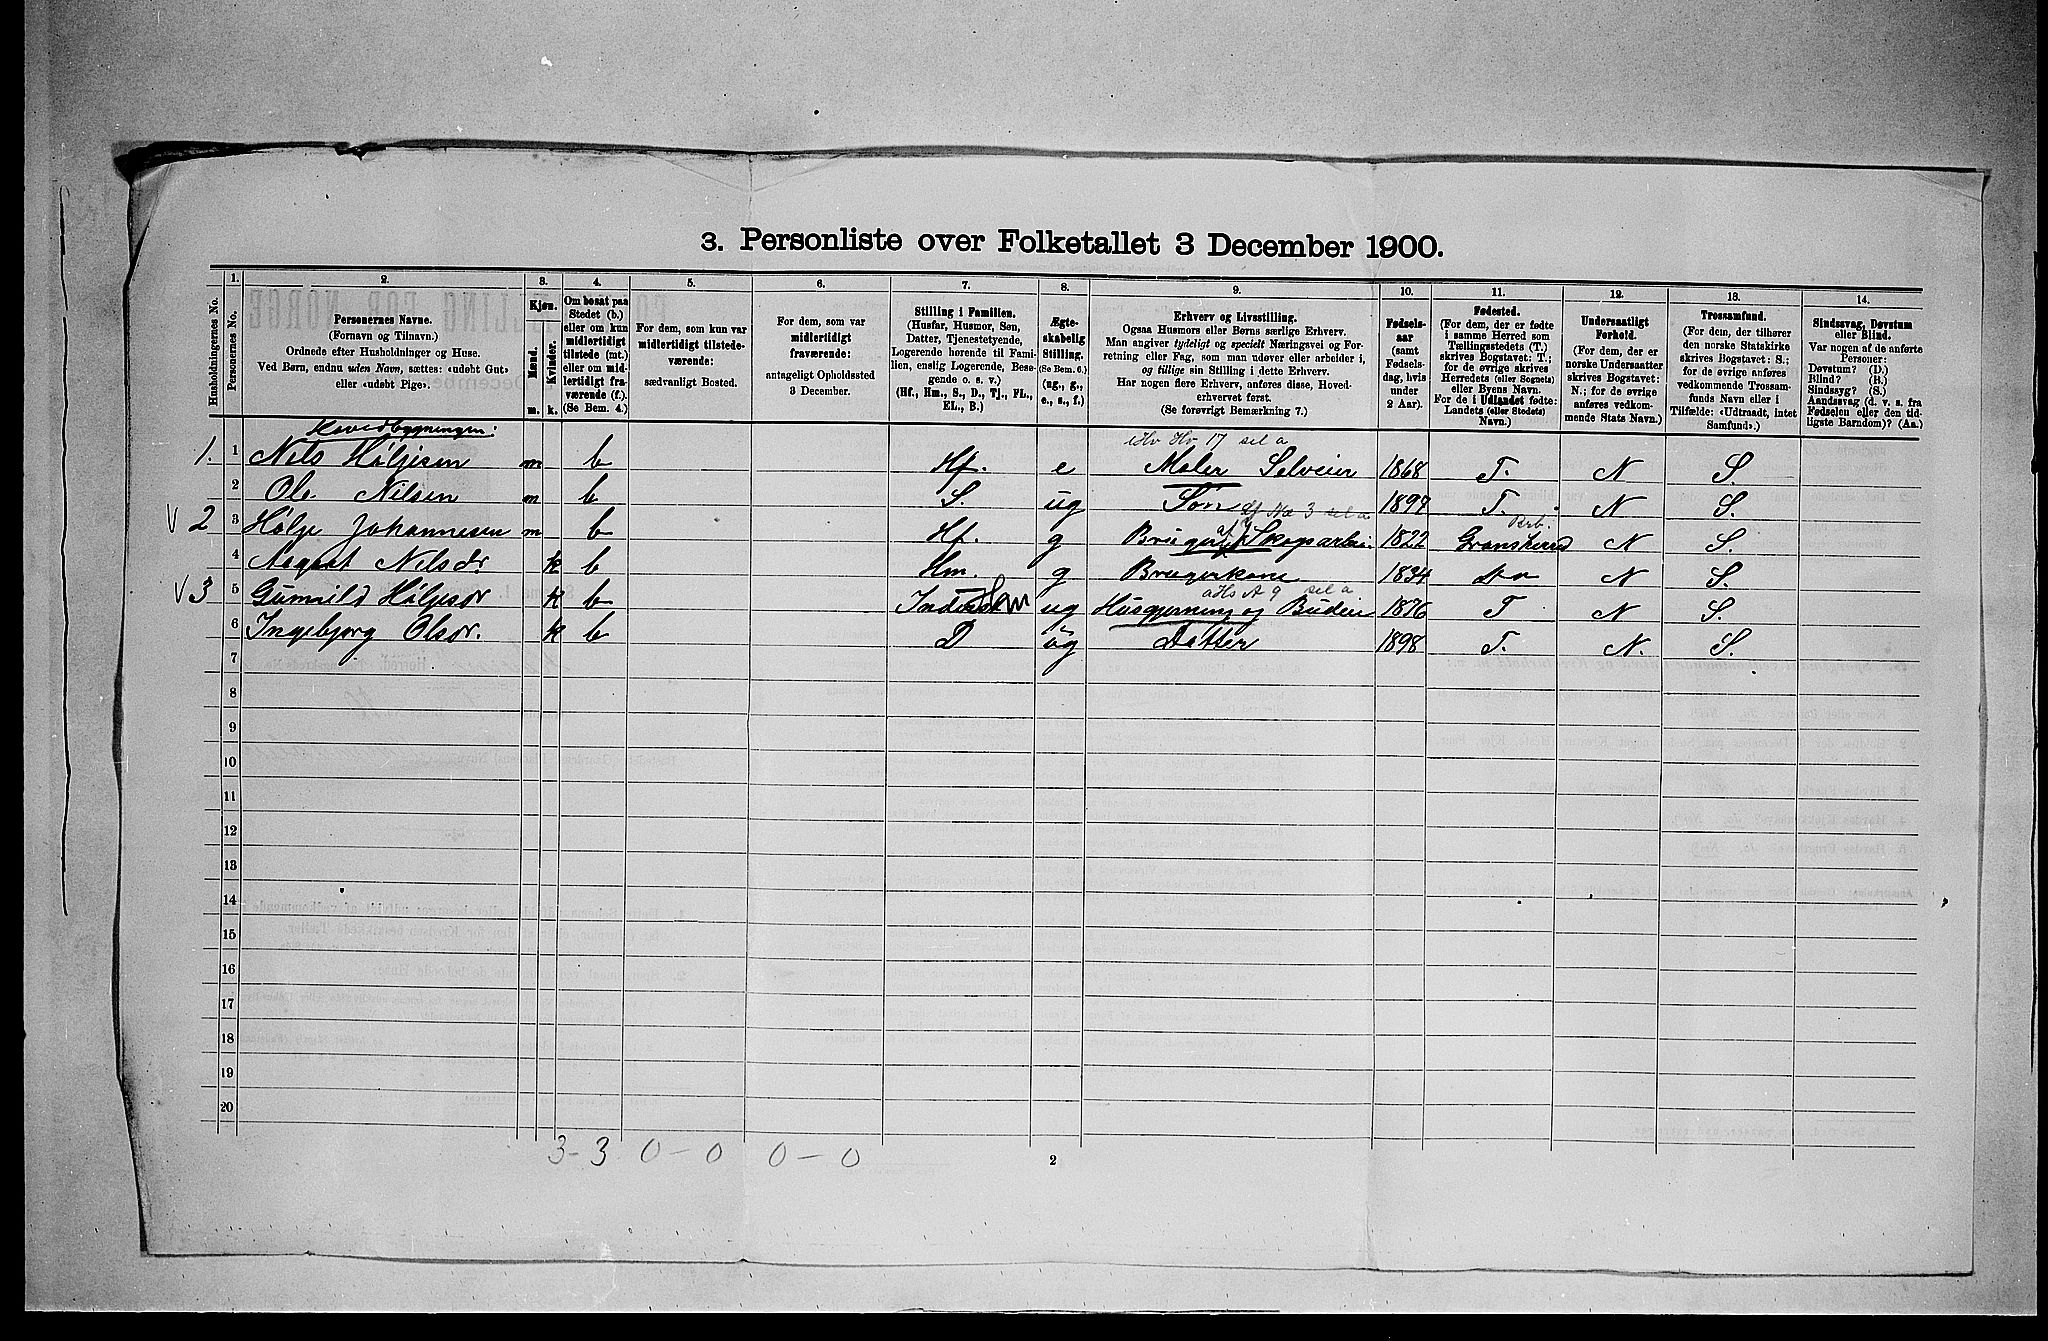 3. Personliste over Folketallet 3 December 1900.
Husholdningernes No.
1. Personernes No.
2. Personernes Navne.
(Fornavn og Tilnavn.)
Ordnede efter Husholdninger og Huse.
Ved Børn, endnu uden Navn, sættes: «udøbt Gut»
eller «udøbt Pige».
3. Kjøn.
Mænd. m.
Kvinder. k.
4. Om bosat paa
Stedet (b.)
eller om kun
midlertidigt
tilstede (mt.)
eller om mid-
lertidigt fra-
værende (f.).
(Se Bem. 4.)
5. For dem, som kun var
midlertidigt tilstede-
værende:
sædvanligt Bosted.
6. For dem, som var
midlertidigt
fraværende:
antageligt Opholdssted
3 December.
7. Stilling i Familien.
(Husfar, Husmor, Søn,
Datter, Tjenestetyende,
Logerende hørende til Fami-
lien, enslig Logerende, Besø-
gende o. s. v.)
(Hf., Hm., S., D., Tj., FL.,
EL., B.)
8. Ægte-
skabelig
Stilling.
(Se Bem. 6.)
(ug., g.,
e., s., f.)
9. Erhverv og Livsstilling.
Ogsaa Husmors eller Børns særlige Erhverv.
Man angiver tydeligt og specielt Næringsvei og For-
retning eller Fag, som man udøver eller arbeider i,
og tillige sin Stilling i dette Erhverv.
Har nogen flere Erhverv, anføres disse, Hoved-
erhvervet først.
(Se forøvrigt Bemærkning 7.)
10. Fødsels-
aar
(samt
Fødsels-
dag, hvis
under
2 Aar).
11. Fødested.
(For dem, der er fødte
i samme Herred som
Tællingsstedets (T.)
skrives Bogstavet: T.;
for de øvrige skrives
Herredets (eller Sognets)
eller Byens Navn.
For de i Udlandet fødte:
Landets (eller Stedets)
Navn.)
12. Undersaatligt
Forhold.
(For dem, der er
norske Undersaatter
skrives Bogstavet:
N.; for de øvrige
anføres vedkom-
mende Stats Navn.)
13. Trossamfund.
(For dem, der tilhører
den norske Statskirke
skrives Bogstavet: S.;
for de øvrige anføres
vedkommende Trossam-
funds Navn eller i
Tilfælde: «Udtraadt, intet
Samfund».)
14. Sindssvag, Døvstum
eller Blind.
Var nogen af de anførte
Personer:
Døvstum? (D.)
Blind? (B.)
Sindssyg? (S.)
Aandssvag (d. v. s. fra
Fødselen eller den tid-
ligste Barndom)? (Aa.)
Hovedbygningen:
1. 1 Nils Høljesen m b Hf. e Maler Selveier 1868 T. N S.
2 Ole Nilsen m b S. ug Søn 1897 T. N S.
v 2 3 Hølje Johannesen m b Hf. g Bruger Skogarbei. 1822 Gransherred N S.
4 Aagaat Nilsdr k b Hm. g Brugerkone 1834 Do N S.
v 3 5 Gunnild Høljesdr k b ug Husgjerning og Budeie 1876 T N S.
6 Ingebjørg Olsdr. k b D ug Datter 1898 T. N. S.
7
8
9
10
11
12
13
14
15
16
17
18
19
20
3-3 0-0 0-0
2